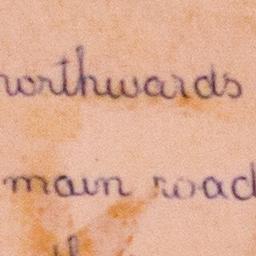 northwards
main road